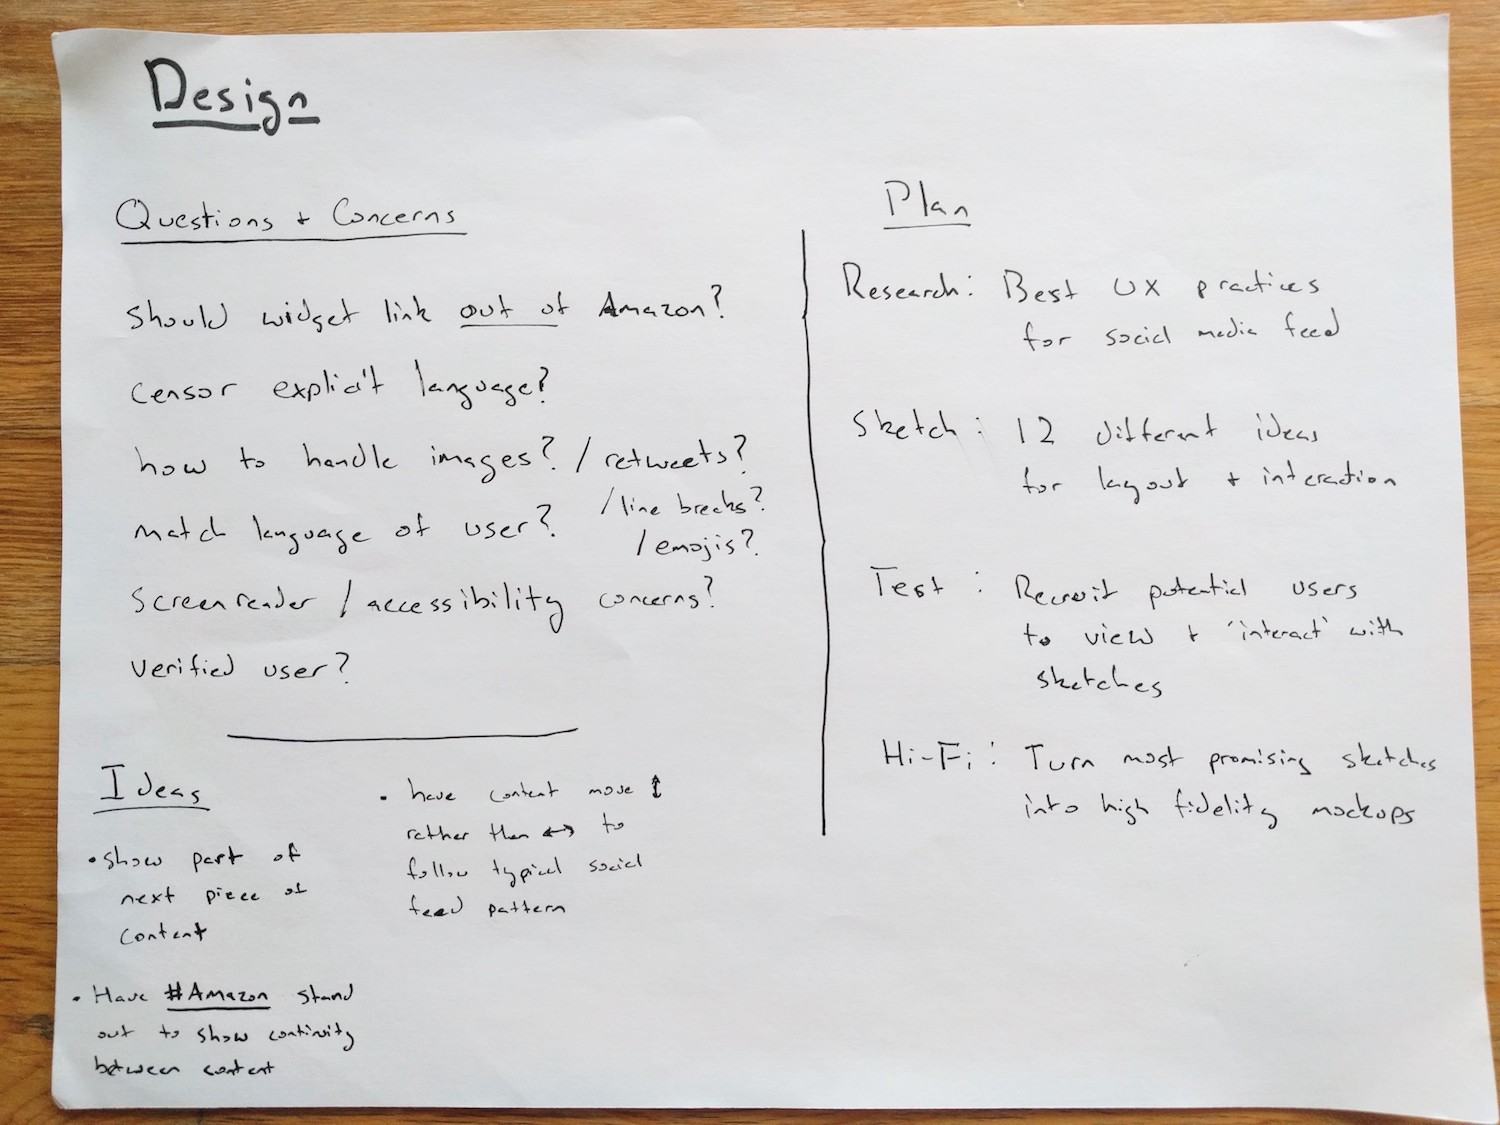 Design
Questions + Concerns
should widget link out of Amazon?
censor explicit language?
how to handle images? / retweets?
/line breaks?
/emojis?
match language of user?
screenreader / accessibility concerns?
verified user?
Ideas
• show part of
next piece of
content
• Have #Amazon stand
out to show continuity
between content
• have content move ↕
rather than ↔ to
follow typical social
feed pattern
Plan
Research: Best UX practices
for social media feed
Sketch: 12 different ideas
for layout + interaction
Test: Recruit potential users
to view + 'interact' with
sketches
Hi-Fi: Turn most promising sketches
into high fidelity mockups